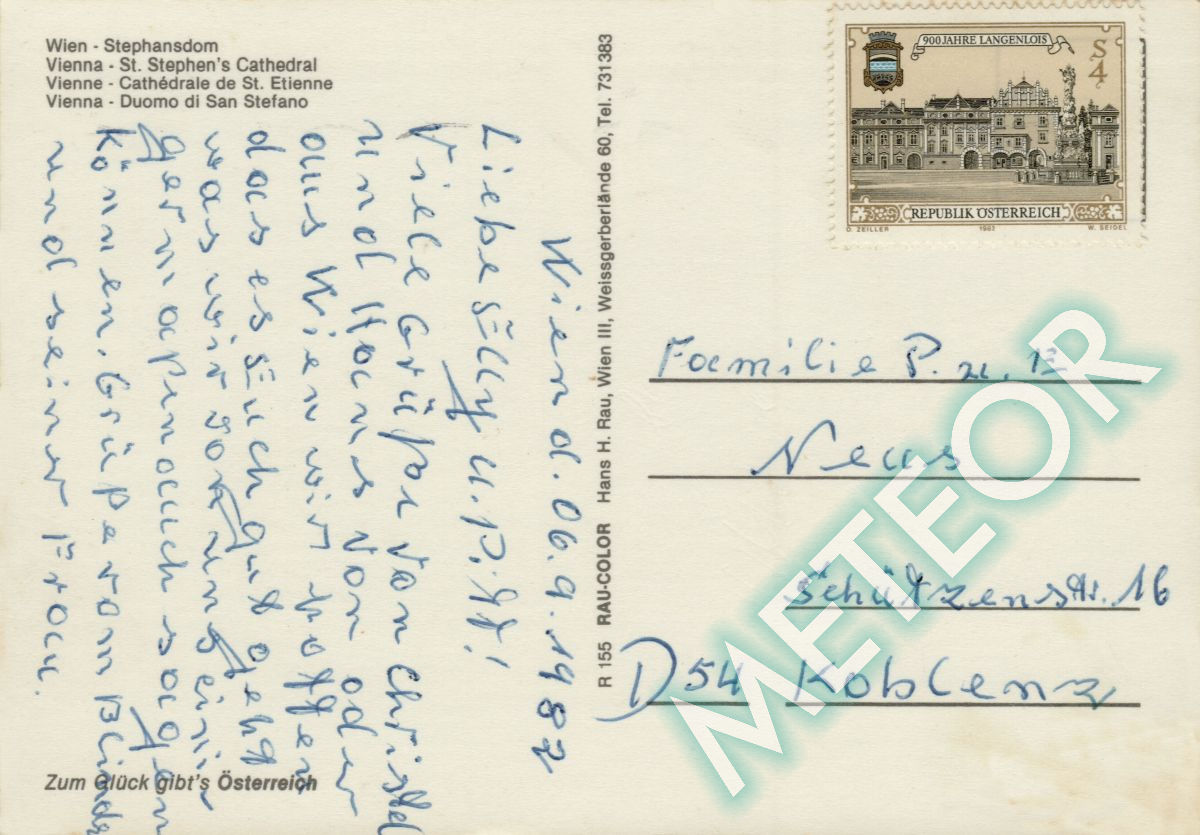 Wien - Stephansdom
Vienna - St. Stephen's Cathedral
Vienne - Cathédrale de St. Etienne
Vienna - Duomo di San Stefano
Wien d. 06.9.1982
Liebe Elly u. Pitt!
Viele Grüße von Christel
und Hans von oder
aus Wien wir hoffen
das es Euch gut geht
was wir von uns
gern auch sagen
können. Grüße vom
und seiner Frau.
Zum Glück gibt's Österreich
R 155 RAU-COLOR Hans H. Rau, Wien III, Weissgerberlände 60, Tel. 731383
900 JAHRE LANGENLOIS
S 4
REPUBLIK ÖSTERREICH
O. ZEILLER 1982 W. SEIDEL
Familie P. u. E
Neus
Schützenstr. 16
D 54 Koblenz
METEOR